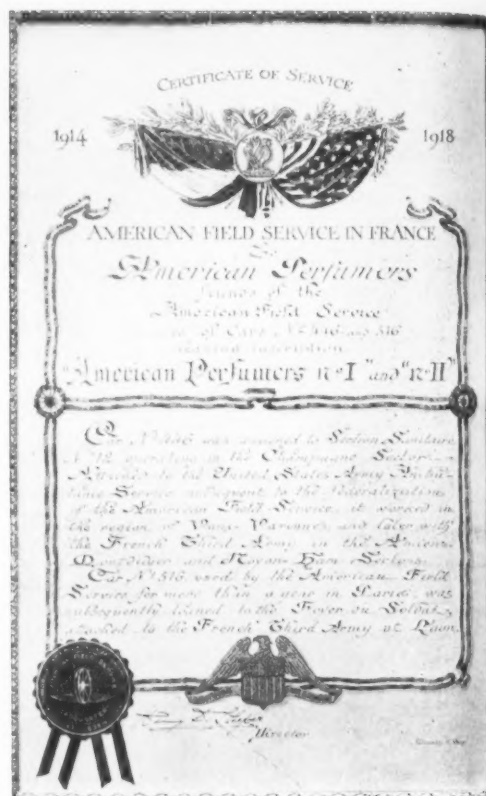 CERTIFICATE OF SERVICE
1914 1918
AMERICAN FIELD SERVICE IN FRANCE
American Perfumers
friends of the
American Field Service
of Cars Nº 446 and 516
bearing inscription
"American Perfumers nº I" and "nº II"
Car Nº 446 was assigned to Section Sanitaire
Nº 12 operating in the Champagne Sector.
Attached to the United States Army Ambu-
lance Service subsequent to the federalization
of the American Field Service, it worked in
the region of Vaux-Varennes and later with
the French Third Army in the
Montdidier and Noyon-Ham Sectors.
Car Nº 516 used by the American Field
Service for more than a year in Paris, was
subsequently loaned to the Foyer du Soldat
attached to the French Third Army at Laon.
Director